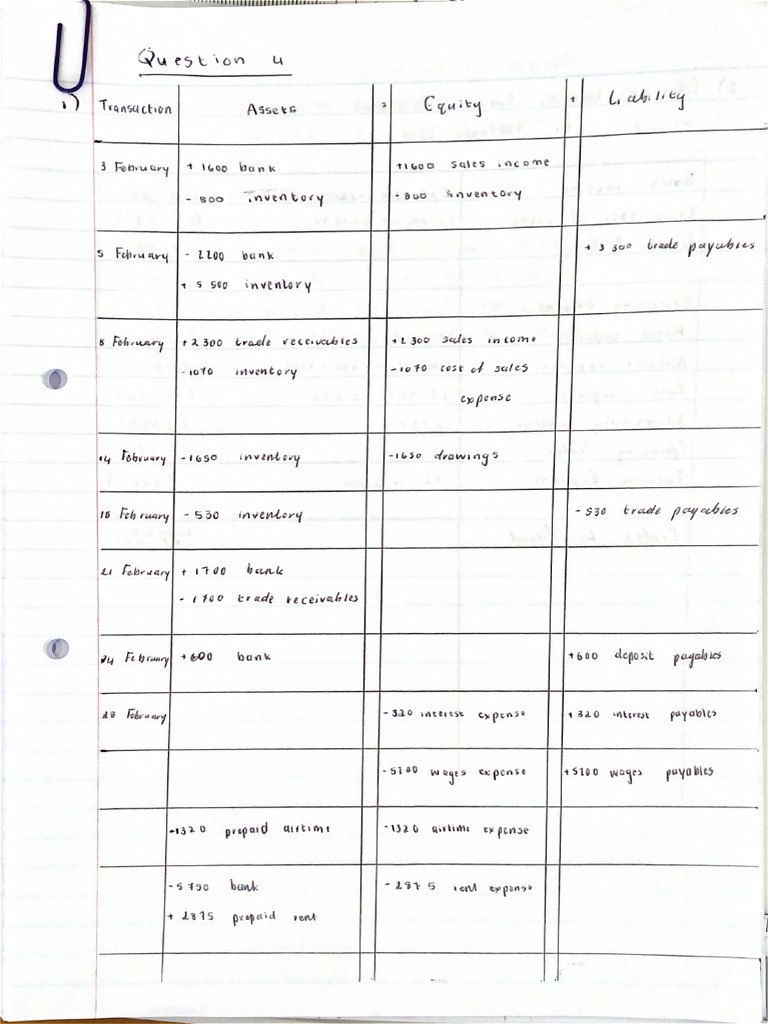 Question 4
1) Transaction Assets = Equity + Liability
3 February + 1600 bank +1600 sales income
- 800 Inventory -800 Inventory
5 February - 2200 bank + 3 300 trade payables
+ 5 500 inventory
8 February +2 300 trade receivables +2 300 sales income
-1070 inventory -1070 cost of sales
expense
14 February -1650 inventory -1650 drawings
18 February - 530 inventory - 530 trade payables
21 February + 1700 bank
- 1700 trade receivables
24 February +600 bank +600 deposit payables
28 February -320 interest expense +320 interest payables
-5100 wages expense +5100 wages payables
-1320 prepaid airtime -1320 airtime expense
-5750 bank -2875 rent expense
+ 2875 prepaid rent